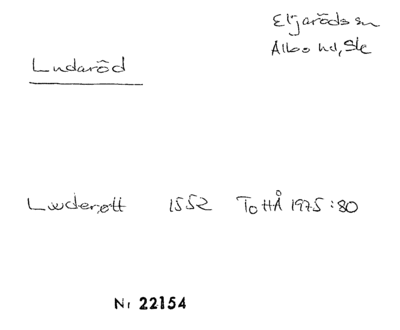 Eljaröds sn
Albo hd, Sk
Lndaröd
1552 ToHÅ 1975:80
Nr 22154